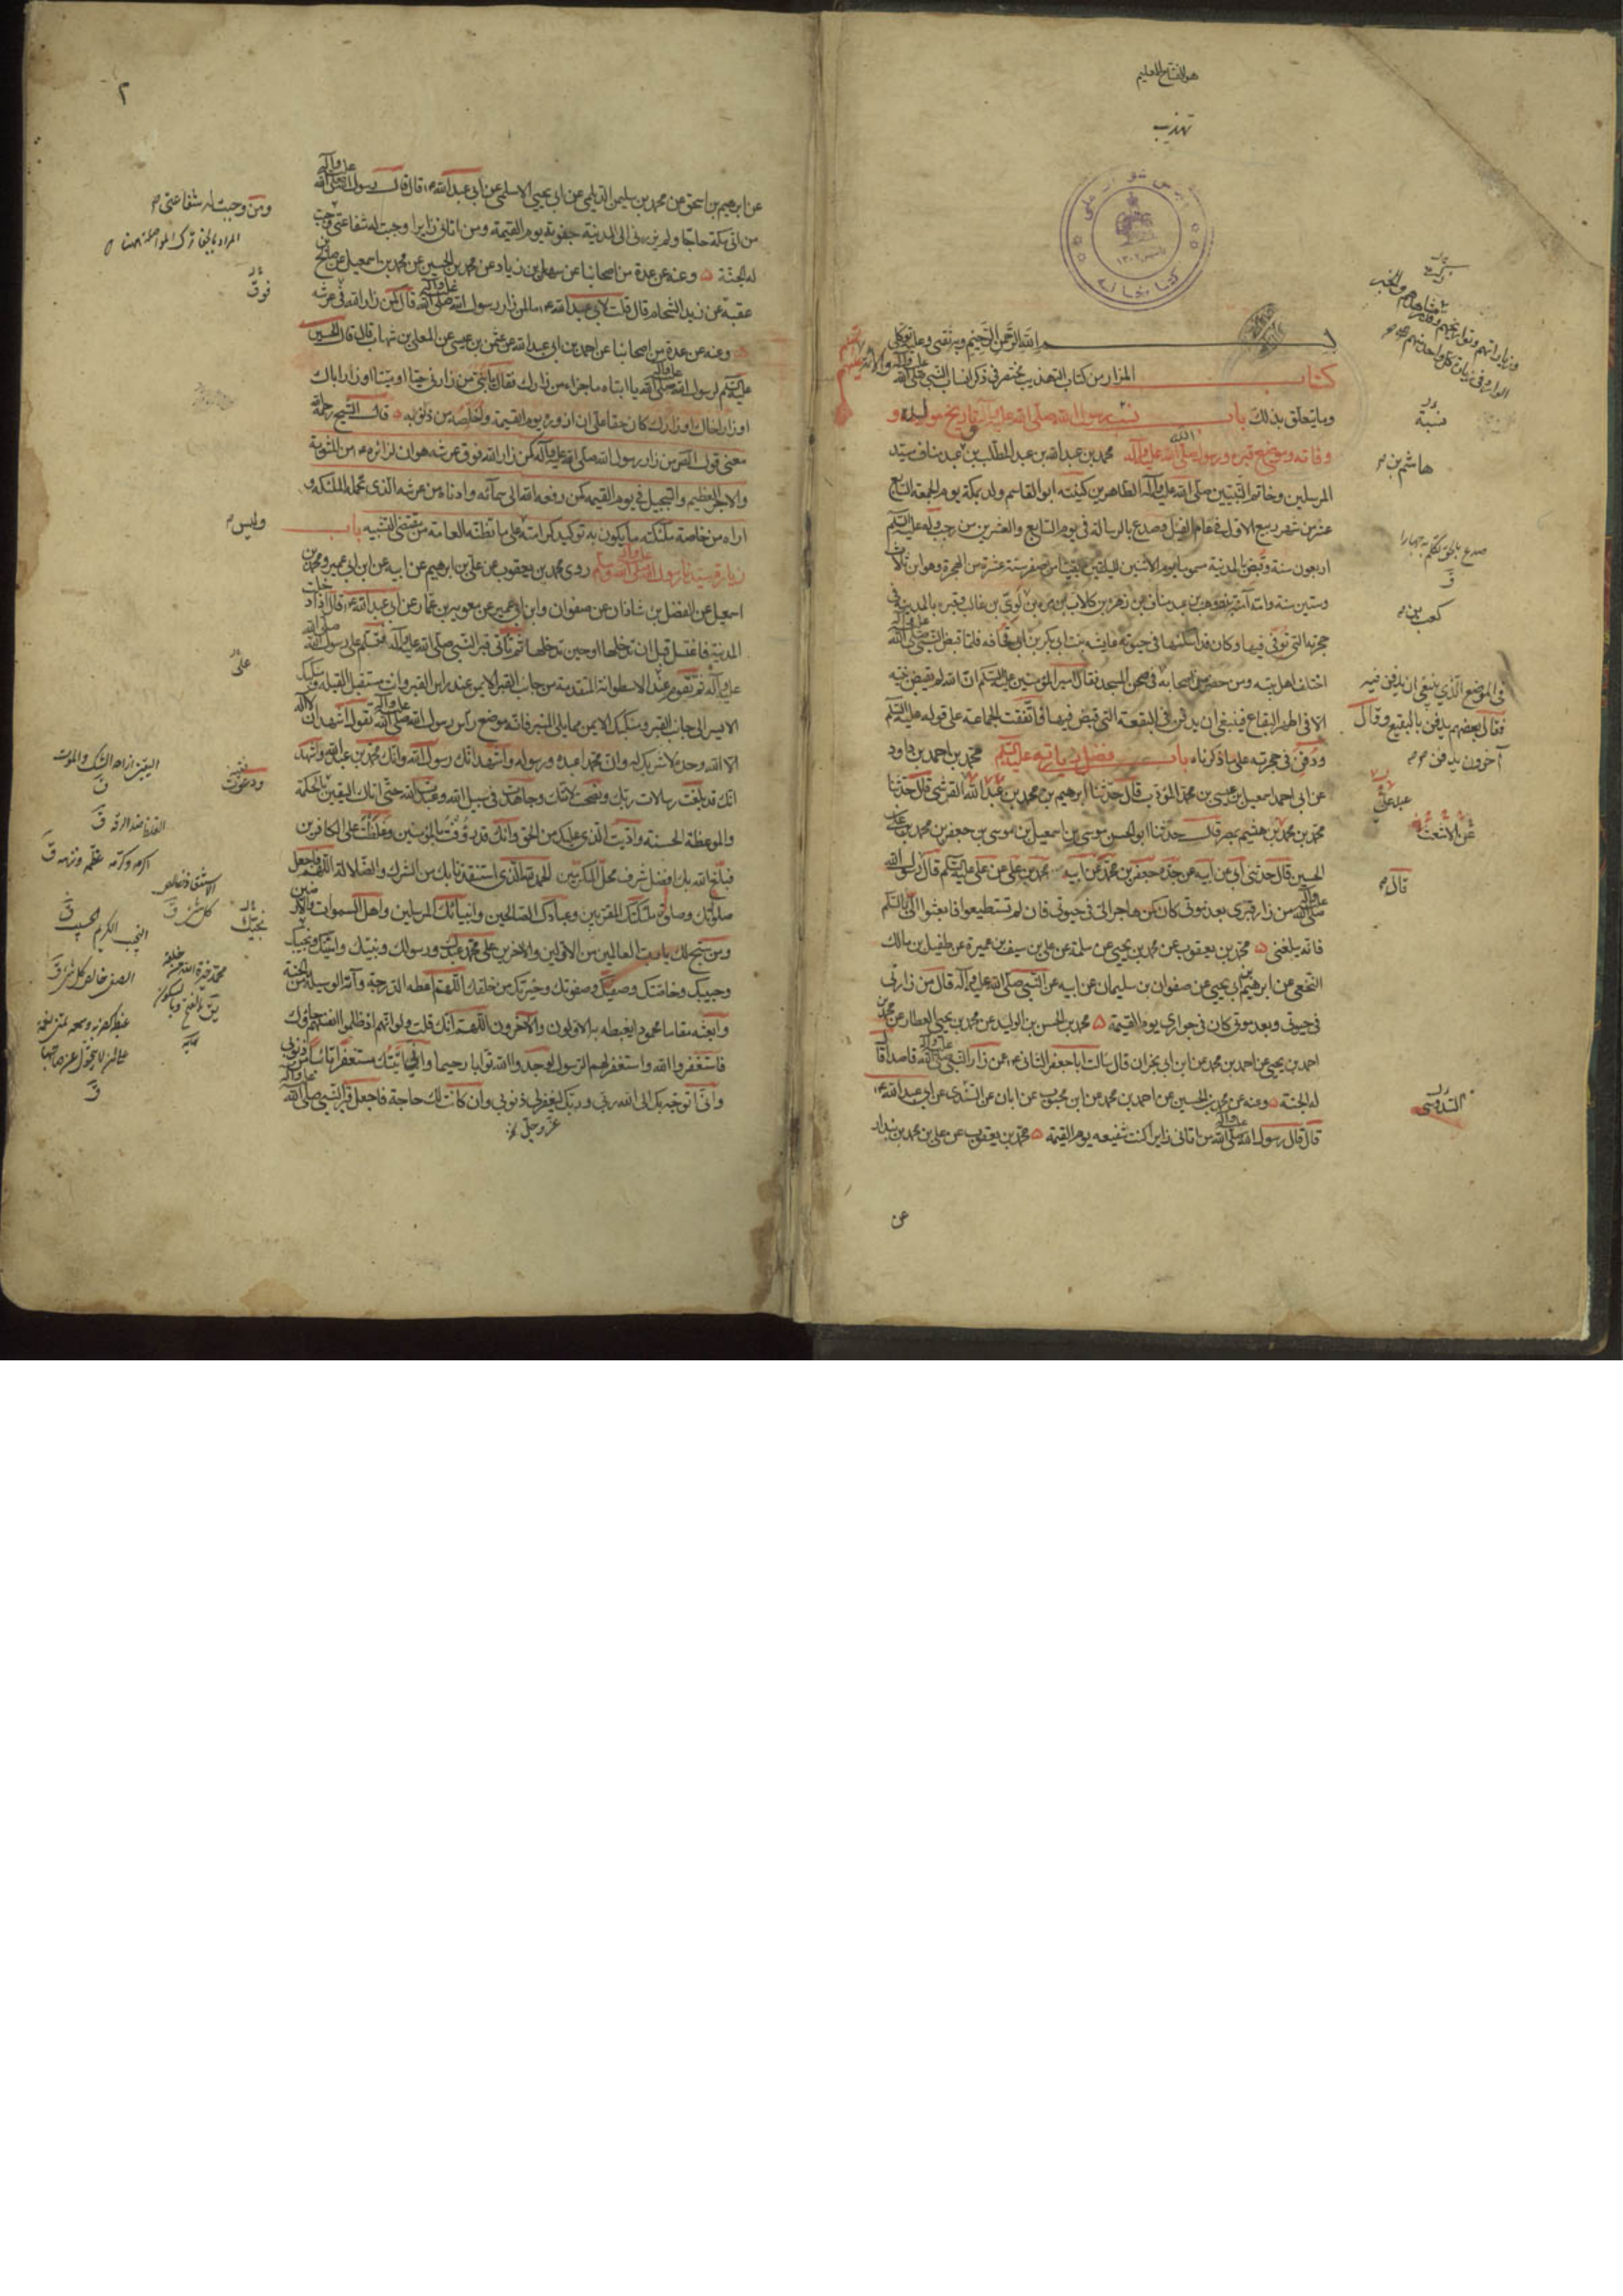 هو الفتاح العليم
تهذيب
بسم الله الرحمن الرحيم وبه ثقتي وعليه توكلي
كتاب المزار من كتاب التهذيب مختصر في ذكر انساب النبي صلى الله عليه وآله والائمة عليهم السلام
وما يتعلق بذلك باب نسب رسول الله صلى الله عليه وآله وتاريخ مولده و
وفاته وموضع قبره ورسول الله صلى الله عليه وآله محمد بن عبد الله بن عبد المطلب بن عبد مناف سيد
المرسلين وخاتم النبيين صلى الله عليه وآله الطاهرين كنيته ابو القاسم ولد بمكة يوم الجمعة السابع
عشر من شهر ربيع الاول في عام الفيل وصدع بالرسالة في يوم السابع والعشرين من رجب وله عليه السلم
اربعون سنة وقبض بالمدينة مسموما يوم الاثنين لليلتين بقيتا من صفر سنة عشرة من الهجرة وهو ابن ثلاث
وستين سنة وامه آمنة بنت وهب بن عبد مناف بن زهرة بن كلاب بن مرة بن لوي بن غالب قبره بالمدينة في
حجرته التي توفي فيها وكان قد اسكنها في حيوته عايشه بنت ابي بكر بن ابي قحافه فلما قبض النبي صلى الله عليه وآله
اختلف اهل بيته ومن حضر من اصحابه في صحن المسجد فقال امير المؤمنين عليه السلم ان الله لم يقبض نبيه
الا في اطهر البقاع فينبغي ان يدفن في البقعة التي قبض فيها فاتفقت الجماعة على قوله عليه السلم
ودفن في حجرته على ما ذكرناه باب فضل زيارته عليه السلم محمد بن احمد بن داود
عن ابي احمد اسمعيل بن عيسى بن محمد المؤدب قال حدثنا ابرهيم بن محمد بن عبد الله القرشي قال حدثنا
محمد بن محمد بن هشيم بمصر قال حدثنا ابو الحسن موسى بن اسمعيل بن موسى بن جعفر بن محمد بن علي بن
الحسين قال حدثني ابي عن ابيه عن جده جعفر بن محمد عن ابيه محمد بن علي عن علي عليه السلم قال رسول الله
صلى الله عليه وآله من زار قبري بعد موتي كان كمن هاجر الي في حيوتي فان لم تستطيعوا فابعثوا الي بالسلم
فانه يبلغني محمد بن يعقوب عن محمد بن يحيى عن سلمة عن علي بن سيف بن عميرة عن طفيل بن مالك
النخعي عن ابرهيم بن ابي يحيى عن صفوان بن سليمان عن ابيه عن النبي صلى الله عليه وآله قال من زارني
في حيوتي وبعد موتي كان في جواري يوم القيمة محمد بن الحسن بن الوليد عن محمد بن يحيى العطار عن محمد بن
احمد بن يحيى عن احمد بن محمد عن ابن ابي نجران قال سالت ابا جعفر الثاني ع عن زار النبي صلى الله عليه وآله قاصدا قال
له الجنة ومنه عن محمد بن الحسين عن احمد بن محمد عن ابن محبوب عن ابان عن السندي عن ابي عبد الله ع
قال قال رسول الله صلى الله عليه وآله من اتاني زايرا كنت شفيعه يوم القيمة محمد بن يعقوب عن علي بن محمد بن بندار
عن
نسبة
هاشم بن
كعب بن
في الموضع الذي ينبغي ان يدفن فيه
فقال بعضهم يدفن بالبقيع وقال
آخرون يدفن
قال
السدوسي
٢
عن ابرهيم بن اسحق عن محمد بن سليمن الديلمي عن ابي يحيى الاسلمي عن ابي عبد الله ع قال قال رسول الله صلى الله عليه وآله
من اتى مكة حاجا ولم يزرني الى المدينة جفوته يوم القيمة ومن اتاني زايرا وجبت له شفاعتي وجبت
له الجنة وعنه عن عدة من اصحابنا عن سهل بن زياد عن محمد بن الحسين عن محمد بن اسمعيل عن صالح بن
عقبة عن زيد الشحام قال قلت لابي عبد الله ع ما لمن زار رسول الله صلى الله عليه وآله قال كمن زار الله في عرشه
وعنه عن عدة من اصحابنا عن احمد بن ابي عبد الله عن عثمن بن عيسى عن المعلى بن شهاب قال قال الحسين
عليه السلم لرسول الله صلى الله عليه وآله يا ابتاه ما جزاء من زارك فقال يا بني من زارني حيا او ميتا او زار اباك
او زار اخاك او زارك كان حقا علي ان ازوره يوم القيمة واخلصه من ذنوبه قال الشيخ رحمه الله
معنى قول الله من زار رسول الله صلى الله عليه وآله كمن زار الله فوق عرشه هو ان لزائره من المثوبة
والاجر العظيم والتبجيل في يوم القيمة كمن رفعه الله الى سمائه وادناه من عرشه الذي تحمله الملئكة و
اراه من خاصة ملئكته ما يكون به توكيد كرامته على ما تظنه العامة من مقتضى التشبيه باب
زيارة سيدنا رسول الله صلى الله عليه وآله وسلم روى محمد بن يعقوب عن علي بن ابرهيم عن ابيه عن ابن ابي عمير ومحمد بن
اسمعيل عن الفضل بن شاذان عن صفوان وابن ابي عمير عن معوية بن عمار عن ابي عبد الله ع قال اذا دخلت
المدينة فاغتسل قبل ان تدخلها او حين تدخلها ثم تأتي قبر النبي صلى الله عليه وآله فتسلم على رسول الله صلى الله
عليه وآله ثم تقوم عند الاسطوانة المتقدمة من جانب القبر الايمن عند راس القبر وانت مستقبل القبلة ومنكبك
الايسر الى جانب القبر ومنكبك الايمن مما يلي المنبر فانه موضع رأس رسول الله صلى الله عليه وآله تقول اشهد ان لا اله
الا الله وحده لا شريك له وان محمدا عبده ورسوله واشهد انك رسول الله وانك محمد بن عبد الله واشهد
انك قد بلغت رسالات ربك ونصحت لامتك وجاهدت في سبيل الله وعبدت الله حتى اتاك اليقين بالحكمة
والموعظة الحسنة واديت الذي عليك من الحق وانك قد رؤفت بالمؤمنين وغلظت على الكافرين
فبلغ الله بك افضل شرف محل المكرمين الحمد لله الذي استنقذنا بك من الشرك والضلالة اللهم فاجعل
صلواتك وصلوة ملئكتك المقربين وعبادك الصالحين وانبيائك المرسلين واهل السموات والارضين
ومن سبح لك يا رب العالمين من الاولين والاخرين على محمد عبدك ورسولك ونبيك وامينك ونجيك
وحبيبك وخاصتك وصفيك وصفوتك وخيرتك من خلقك اللهم اعطه الدرجة وآته الوسيلة من الجنة
وابعثه مقاما محمودا يغبطه به الاولون والآخرون اللهم انك قلت ولو انهم اذ ظلموا انفسهم جاؤك
فاستغفروا الله واستغفر لهم الرسول لوجدوا الله توابا رحيما واني اتيتك مستغفرا تائبا من ذنوبي
واني اتوجه بك الى الله ربي وربك ليغفر لي ذنوبي وان كانت لك حاجة فاجعل قبر النبي صلى الله عليه وآله
عز وجل
ومن وجبت له شفاعتي
فوق
وليس
على